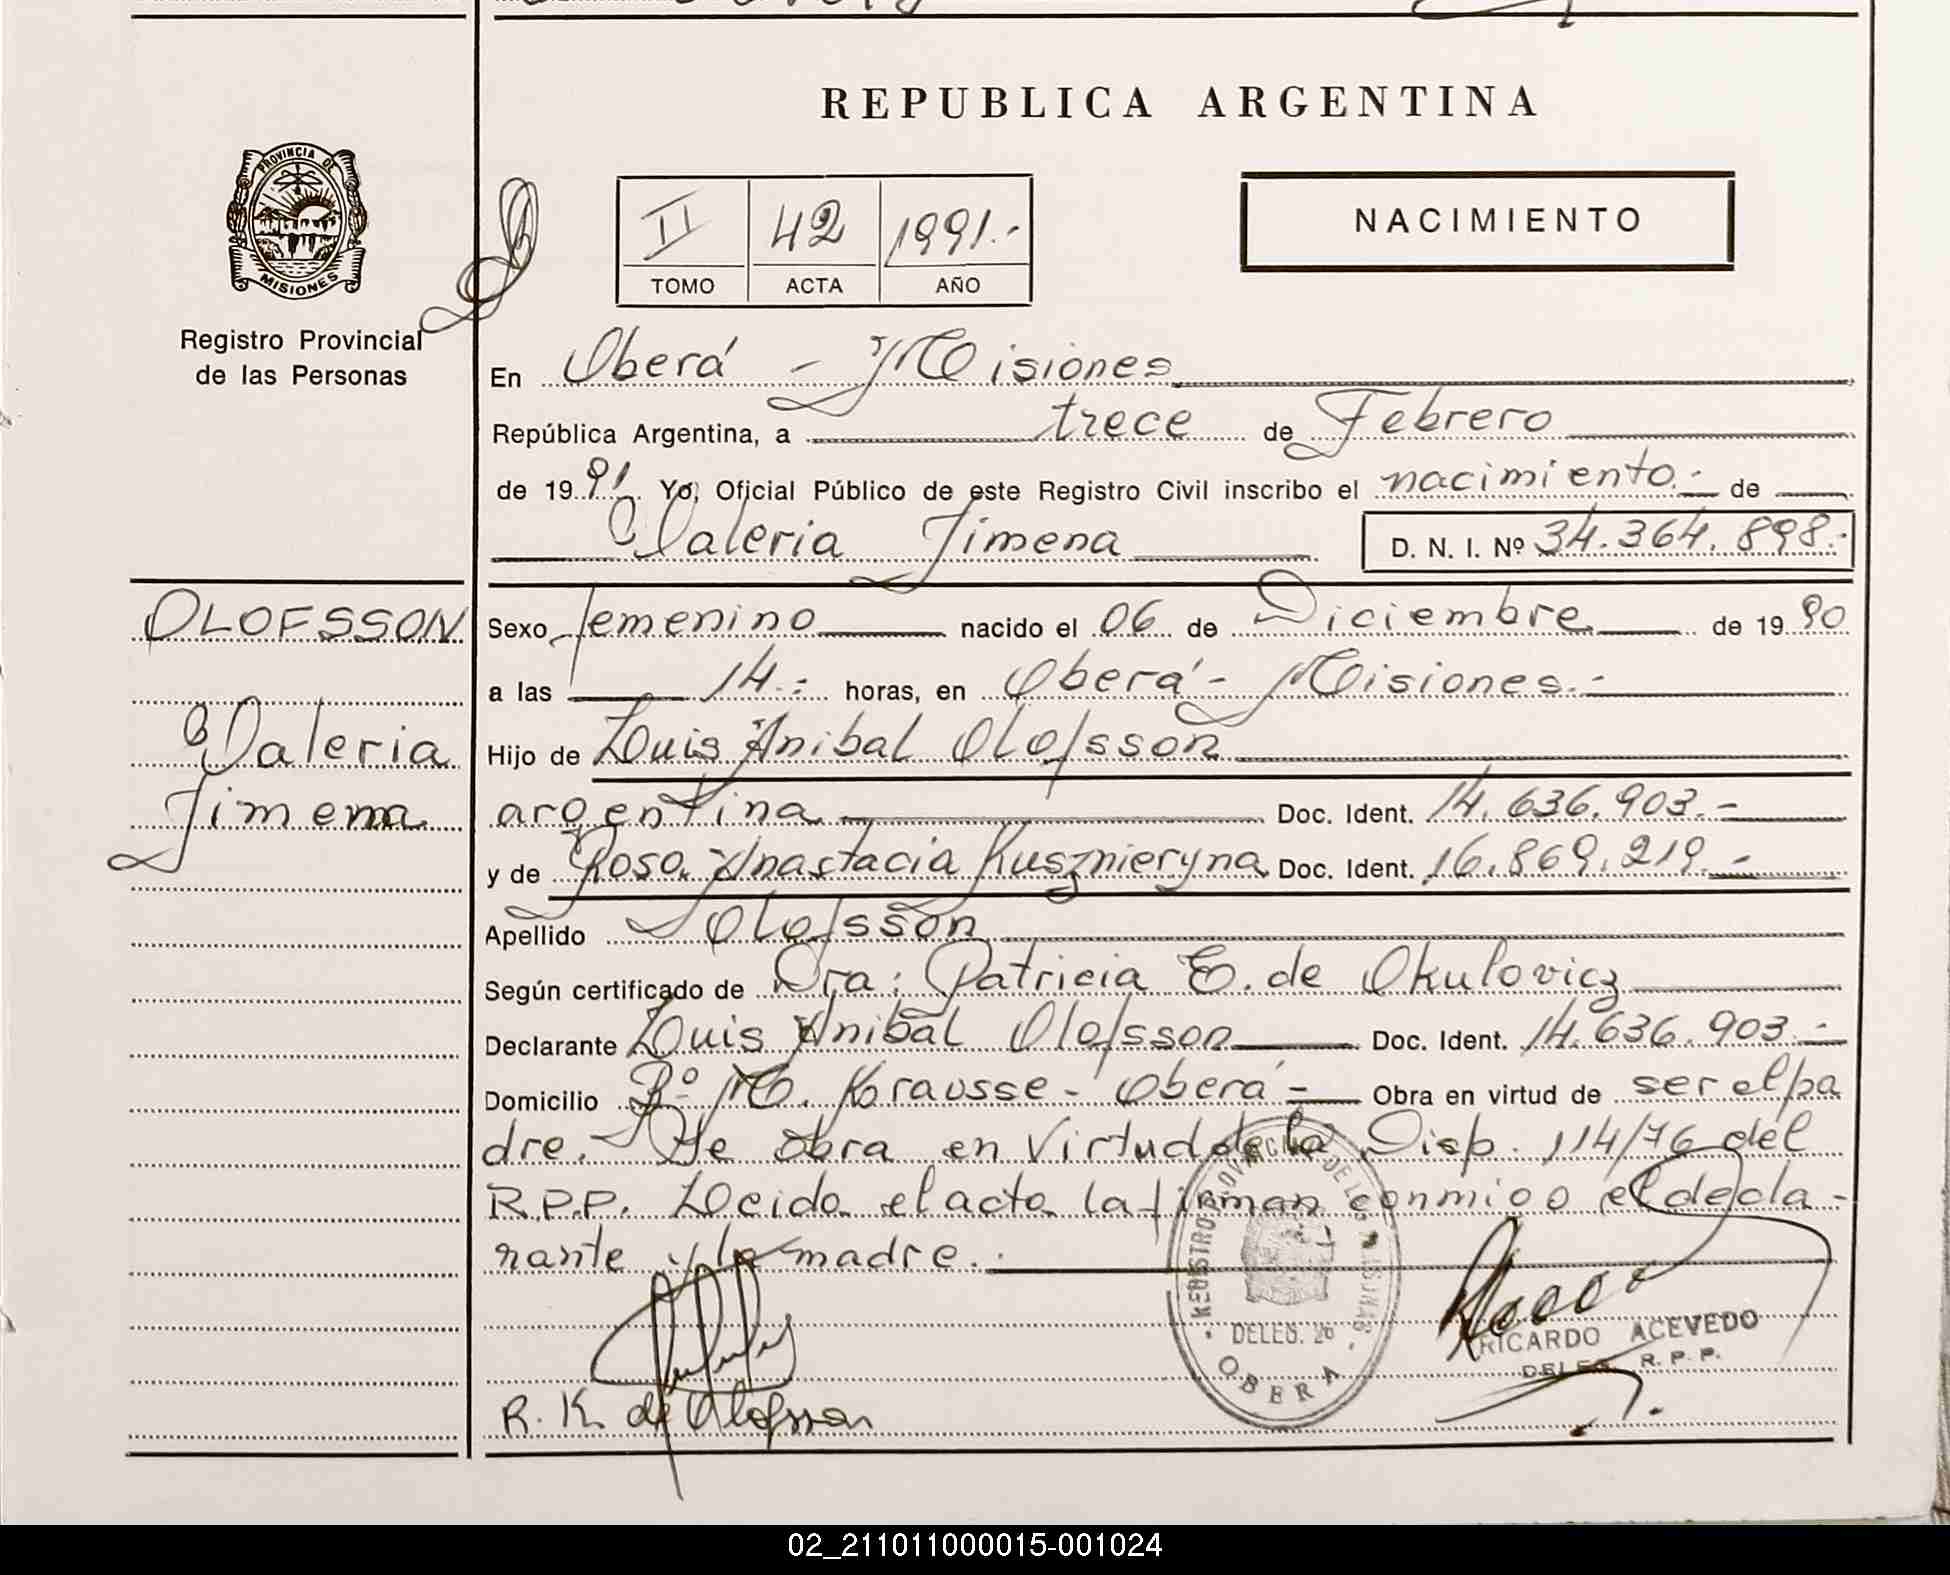 REPUBLICA ARGENTINA
PROVINCIA DE
MISIONES
Registro Provincial
de las Personas
II 42 1991.-
TOMO ACTA AÑO
NACIMIENTO
En Oberá - Misiones
República Argentina, a trece de Febrero
de 1991. Yo, Oficial Público de este Registro Civil inscribo el nacimiento.- de
Valeria Jimena D. N. I. Nº 34.364.898.-
OLOFSSON
Valeria
Jimena
Sexo femenino nacido el 06 de Diciembre de 1990
a las 14.- horas, en Oberá - Misiones.-
Hijo de Luis Anibal Olofsson
argentina Doc. Ident. 14.636.903.-
y de Rosa Anastacia Kusznieryna Doc. Ident. 16.869.219.-
Apellido Olofsson
Según certificado de Dra: Patricia E. de Okulovicz
Declarante Luis Anibal Olofsson Doc. Ident. 14.636.903.-
Domicilio Bº M. Krausse - Oberá - Obra en virtud de ser el pa
dre. - Se obra en Virtud de la Disp. 114/76 del
R.P.P. Leida el acta la firman conmigo el decla-
rante y la madre.
REGISTRO PROVINCIAL DE LAS PERSONAS
DELEG. 20
OBERA
RICARDO ACEVEDO
DELEG. R. P. P.
R. K. de Olofsson
02_211011000015-001024